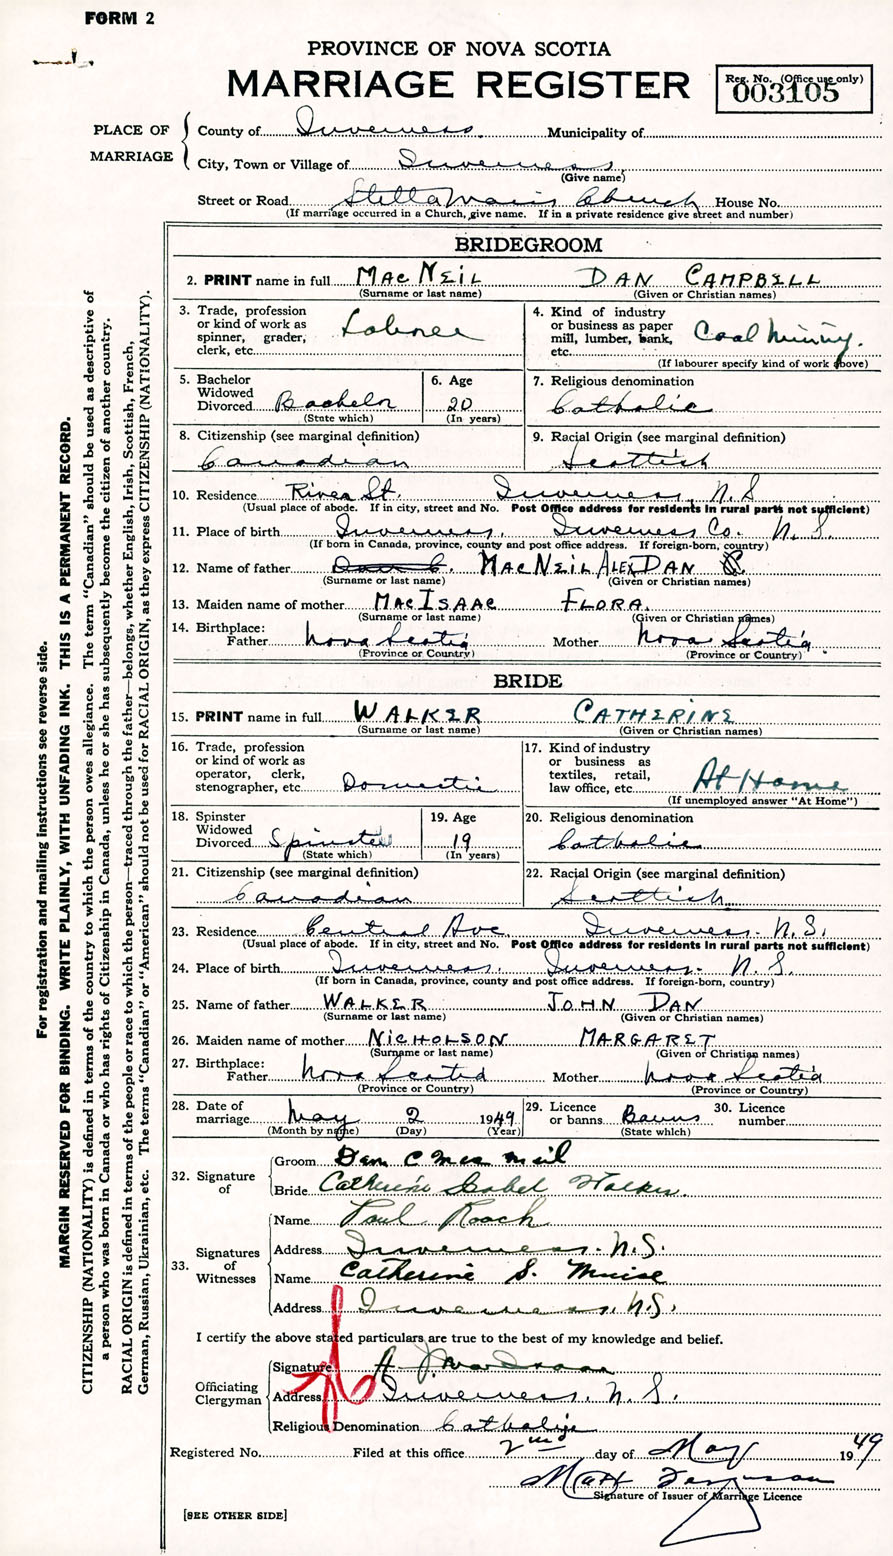 FORM 2
PROVINCE OF NOVA SCOTIA
MARRIAGE REGISTER
Reg. No. (Office use only)
003105
PLACE OF MARRIAGE
County of Inverness. Municipality of
City, Town or Village of Inverness,
(Give name)
Street or Road Stella Maris Church House No.
(If marriage occurred in a Church, give name. If in a private residence give street and number)
BRIDEGROOM
2. PRINT name in full MACNEIL DAN CAMPBELL
(Surname or last name) (Given or Christian names)
3. Trade, profession or kind of work as spinner, grader, clerk, etc. Laborer
4. Kind of industry or business as paper mill, lumber, bank, etc. Coal Mining.
(If labourer specify kind of work above)
5. Bachelor Widowed Divorced Bachelor
(State which)
6. Age 20
(In years)
7. Religious denomination
Catholic
8. Citizenship (see marginal definition)
Canadian
9. Racial Origin (see marginal definition)
Scottish
10. Residence River St. Inverness, N.S
(Usual place of abode. If in city, street and No. Post Office address for residents in rural parts not sufficient)
11. Place of birth Inverness, Inverness Co. N.S.
(If born in Canada, province, county and post office address. If foreign-born, country)
12. Name of father MACNEIL ALEX DAN
(Surname or last name) (Given or Christian names)
13. Maiden name of mother MACISAAC FLORA.
(Surname or last name) (Given or Christian names)
14. Birthplace:
Father Nova Scotia Mother Nova Scotia
(Province or Country) (Province or Country)
BRIDE
15. PRINT name in full WALKER CATHERINE
(Surname or last name) (Given or Christian names)
16. Trade, profession or kind of work as operator, clerk, stenographer, etc. Domestic
17. Kind of industry or business as textiles, retail, law office, etc. At Home
(If unemployed answer "At Home")
18. Spinster Widowed Divorced Spinster
(State which)
19. Age 19
(In years)
20. Religious denomination
Catholic
21. Citizenship (see marginal definition)
Canadian
22. Racial Origin (see marginal definition)
Scottish
23. Residence Central Ave. Inverness. N.S.
(Usual place of abode. If in city, street and No. Post Office address for residents in rural parts not sufficient)
24. Place of birth Inverness. Inverness. N.S.
(If born in Canada, province, county and post office address. If foreign-born, country)
25. Name of father WALKER JOHN DAN
(Surname or last name) (Given or Christian names)
26. Maiden name of mother NICHOLSON MARGARET
(Surname or last name) (Given or Christian names)
27. Birthplace:
Father Nova Scotia Mother Nova Scotia
(Province or Country) (Province or Country)
28. Date of marriage May 2 1949
(Month by name) (Day) (Year)
29. Licence or banns Banns
(State which)
30. Licence number
32. Signature of
Groom Dan C MacNeil
Bride Catherine Isabel Walker.
33. Signatures of Witnesses
Name Paul Roach
Address Inverness. N.S.
Name Catherine S. Muise
Address Inverness. N.S.
I certify the above stated particulars are true to the best of my knowledge and belief.
Officiating Clergyman
Signature A. J. MacIsaac
Address Inverness. N.S.
Religious Denomination Catholic
Registered No. Filed at this office 2nd day of May 1949
Matt Ferguson
Signature of Issuer of Marriage Licence
[SEE OTHER SIDE]
For registration and mailing instructions see reverse side.
MARGIN RESERVED FOR BINDING. WRITE PLAINLY, WITH UNFADING INK. THIS IS A PERMANENT RECORD.
CITIZENSHIP (NATIONALITY) is defined in terms of the country to which the person owes allegiance. The term "Canadian" should be used as descriptive of
a person who was born in Canada or who has rights of Citizenship in Canada, unless he or she has subsequently become the citizen of another country.
RACIAL ORIGIN is defined in terms of the people or race to which the person—traced through the father—belongs, whether English, Irish, Scottish, French,
German, Russian, Ukrainian, etc. The terms "Canadian" or "American" should not be used for RACIAL ORIGIN, as they express CITIZENSHIP (NATIONALITY).